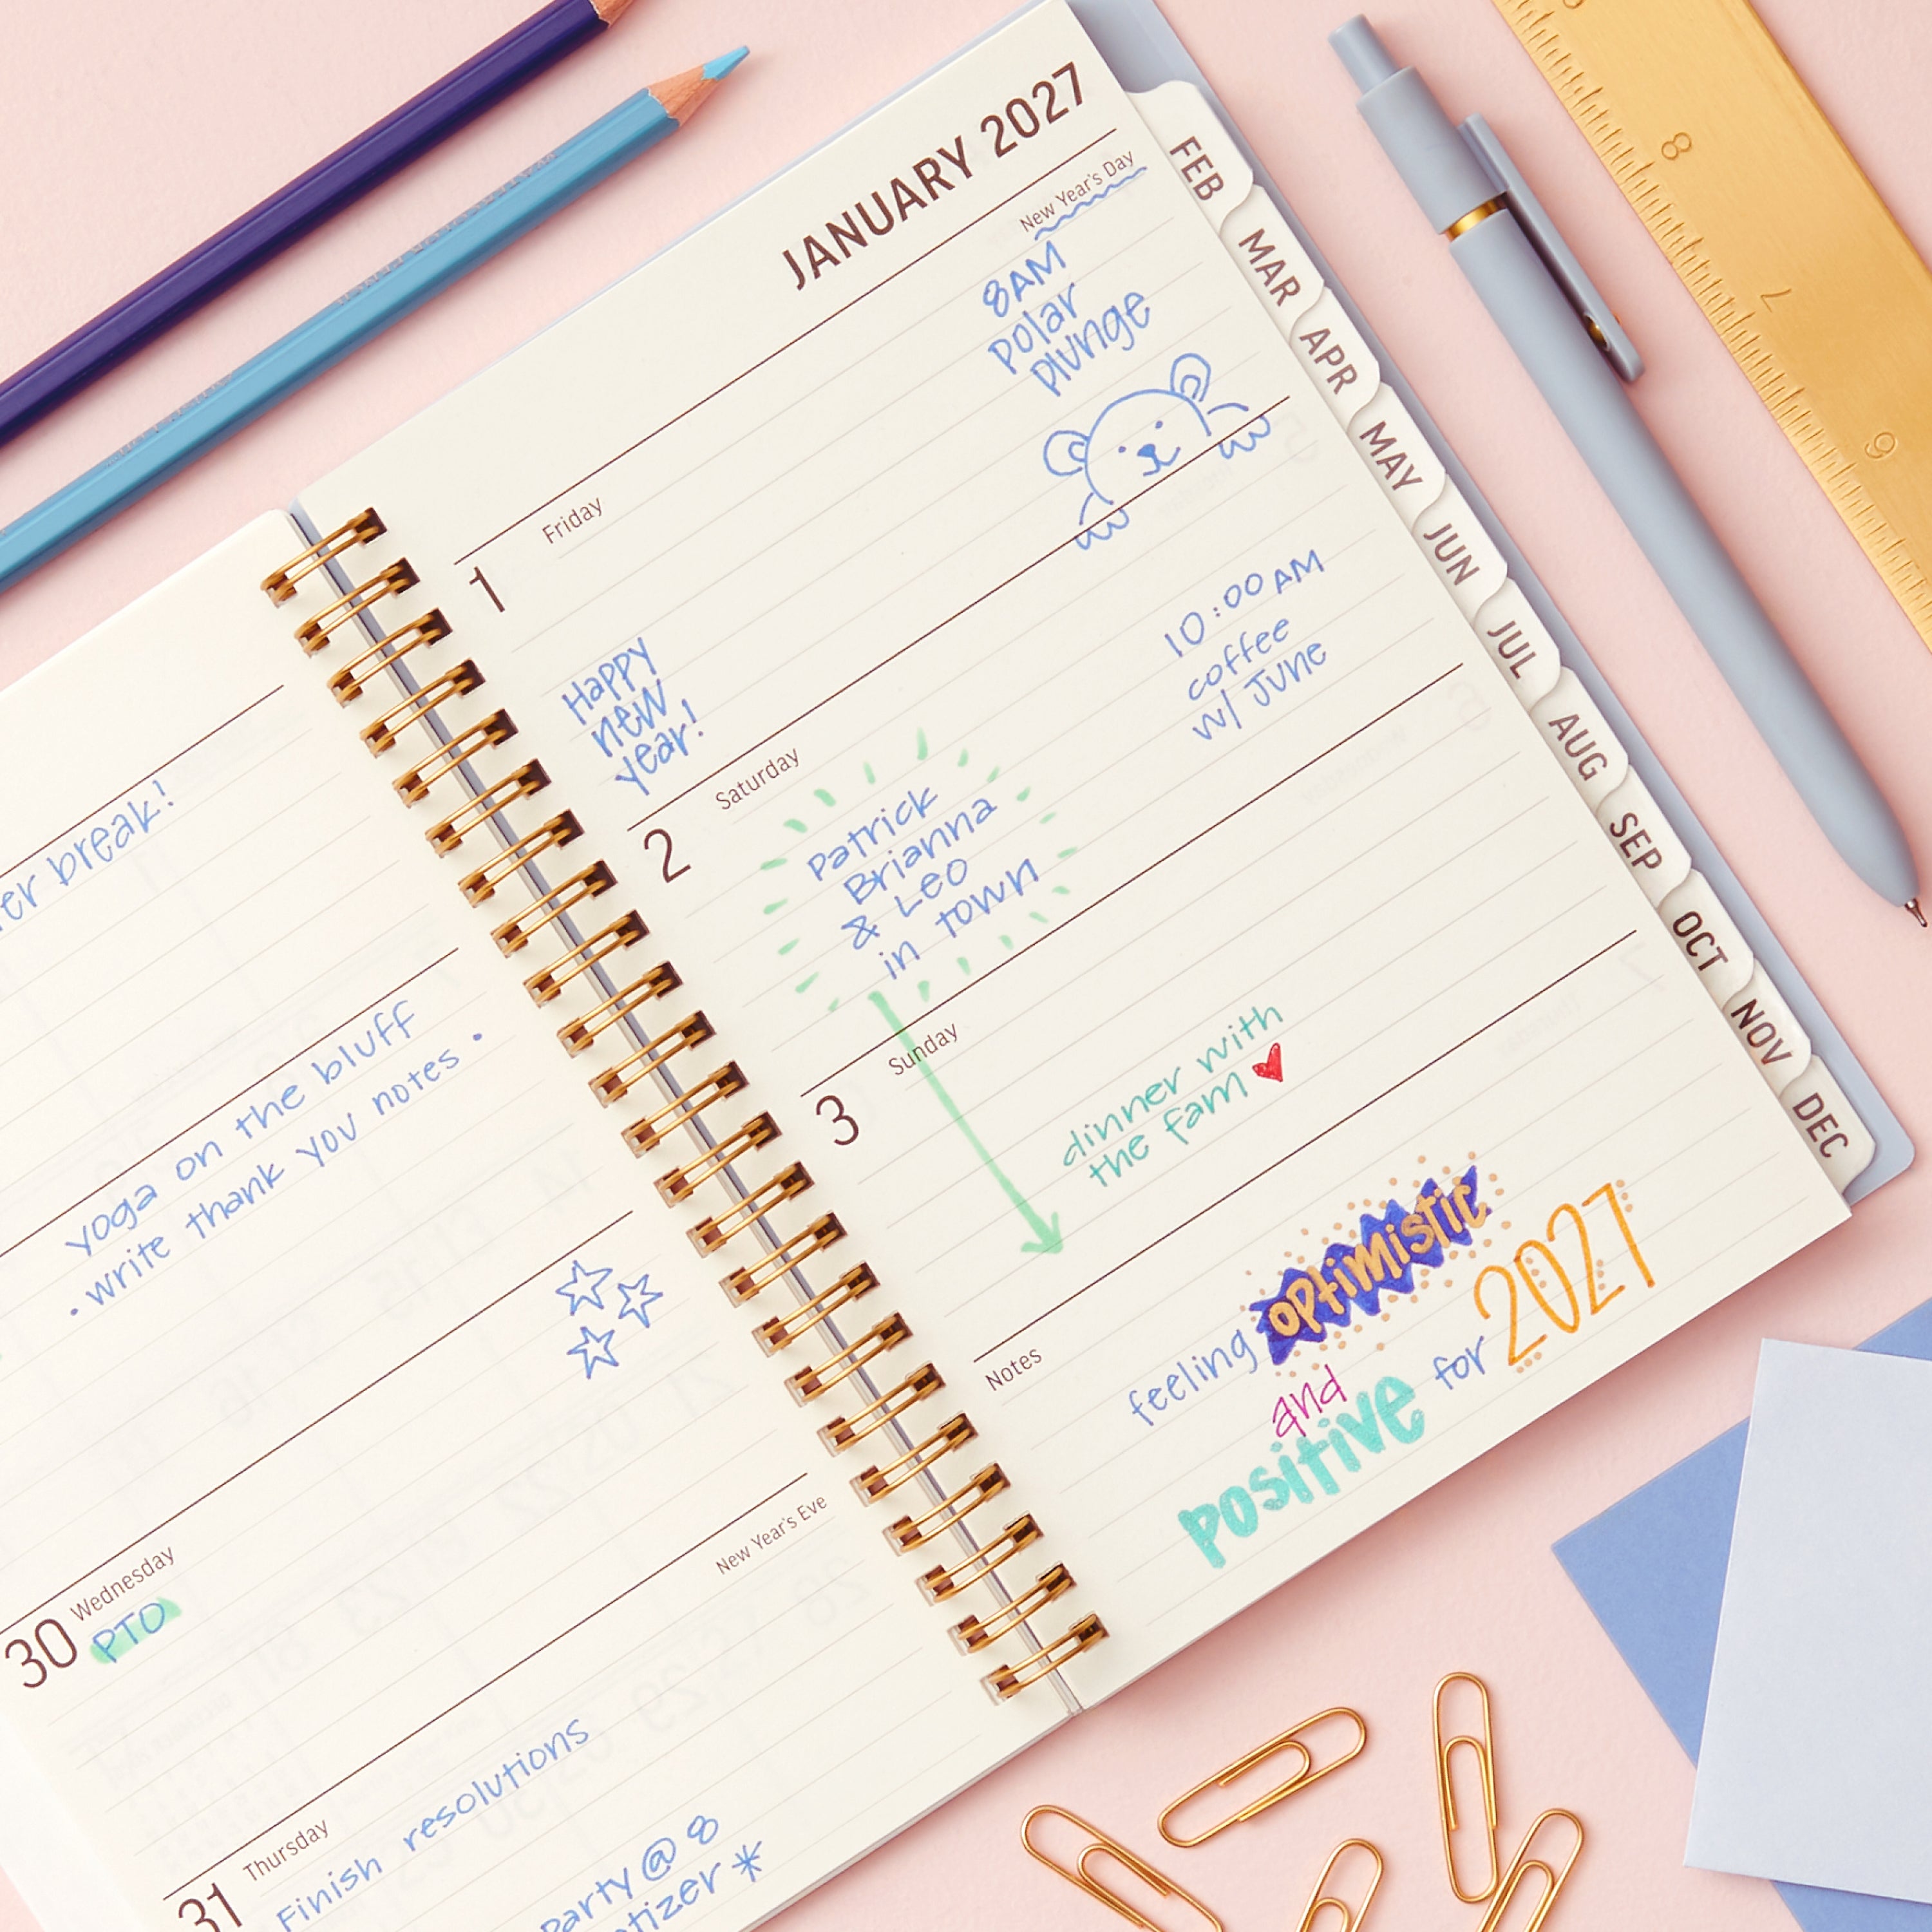 break!
yoga on the bluff
• write thank you notes •
30
Wednesday
PTO
31
Thursday
New Year's Eve
Finish resolutions
Party @ 8
JANUARY 2027
1
Friday
New Year's Day
8AM
polar
plunge
Happy
new
year!
2
Saturday
10:00 AM
coffee
w/ June
Patrick
Brianna
& Leo
in town
3
Sunday
dinner with
the fam
Notes
feeling optimistic
and
positive for 2027
FEB
MAR
APR
MAY
JUN
JUL
AUG
SEP
OCT
NOV
DEC
8
7
6